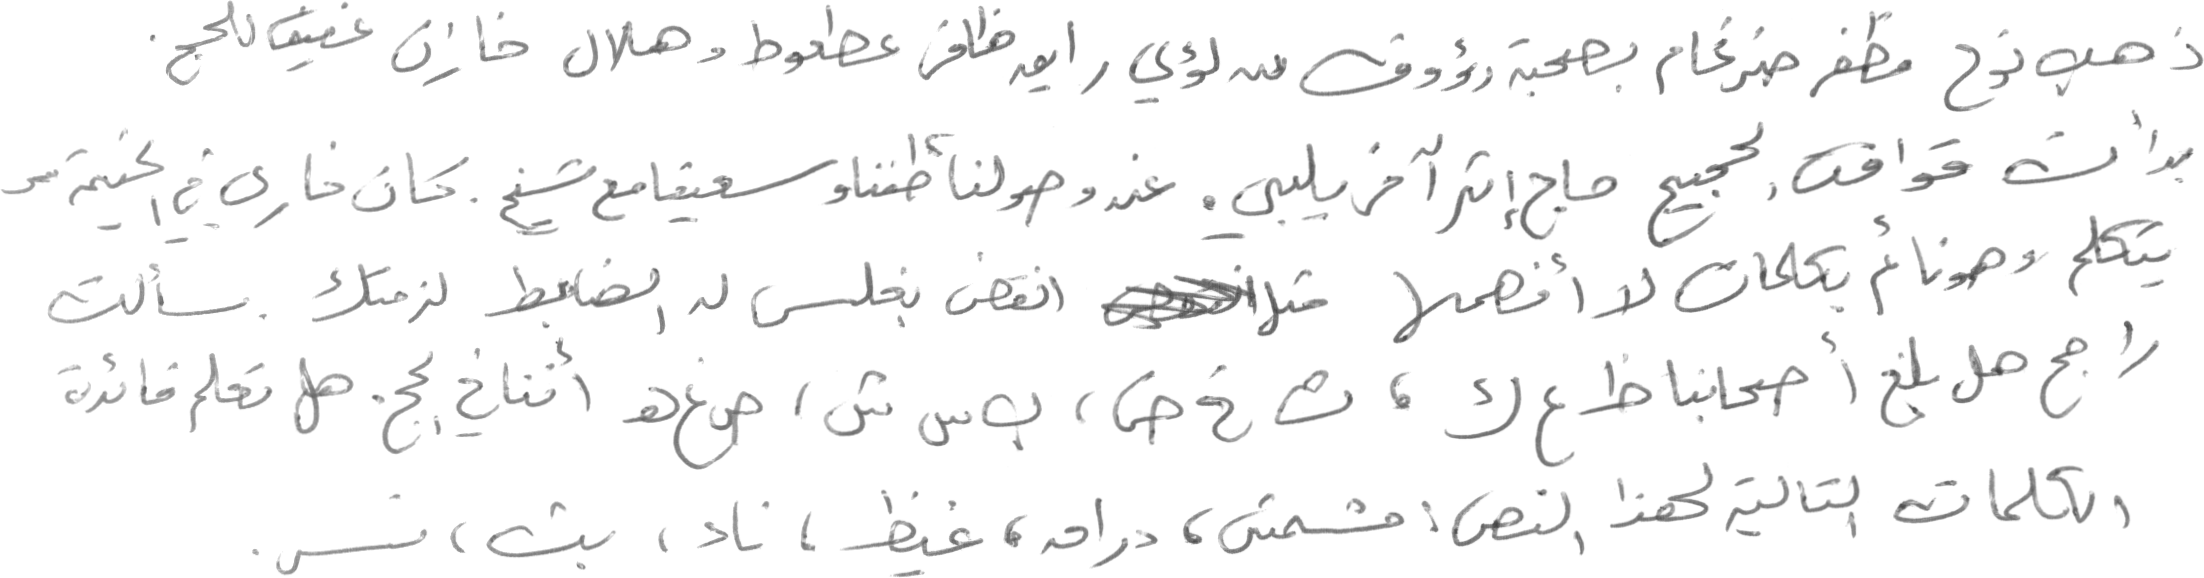 ذهب نوح مظفر ضرغام بصحبة رؤوف بن لؤي رايق ظافر عطعوط وهلال خازن غفيق للحج.
بدأت قوافل حجيج حاج إثر آخر يلبي. عند وصولنا طفنا وسعينا مع شيخ. كان خاري في الخيمة
يتكلم وهو نائم بكلمات لا أفهمها مثل انقض بغلس له الضابط لزمتك. سألت
راجح هل بلغ أصحابنا ظ ع ك ، ث خ ض ، ب س ش ، ص غ ه أثناء الحج. هل تعلم فائدة
الكلمات التالية لهذا النص: مشمش، دراق، غيظ، ناد، بث، نس.